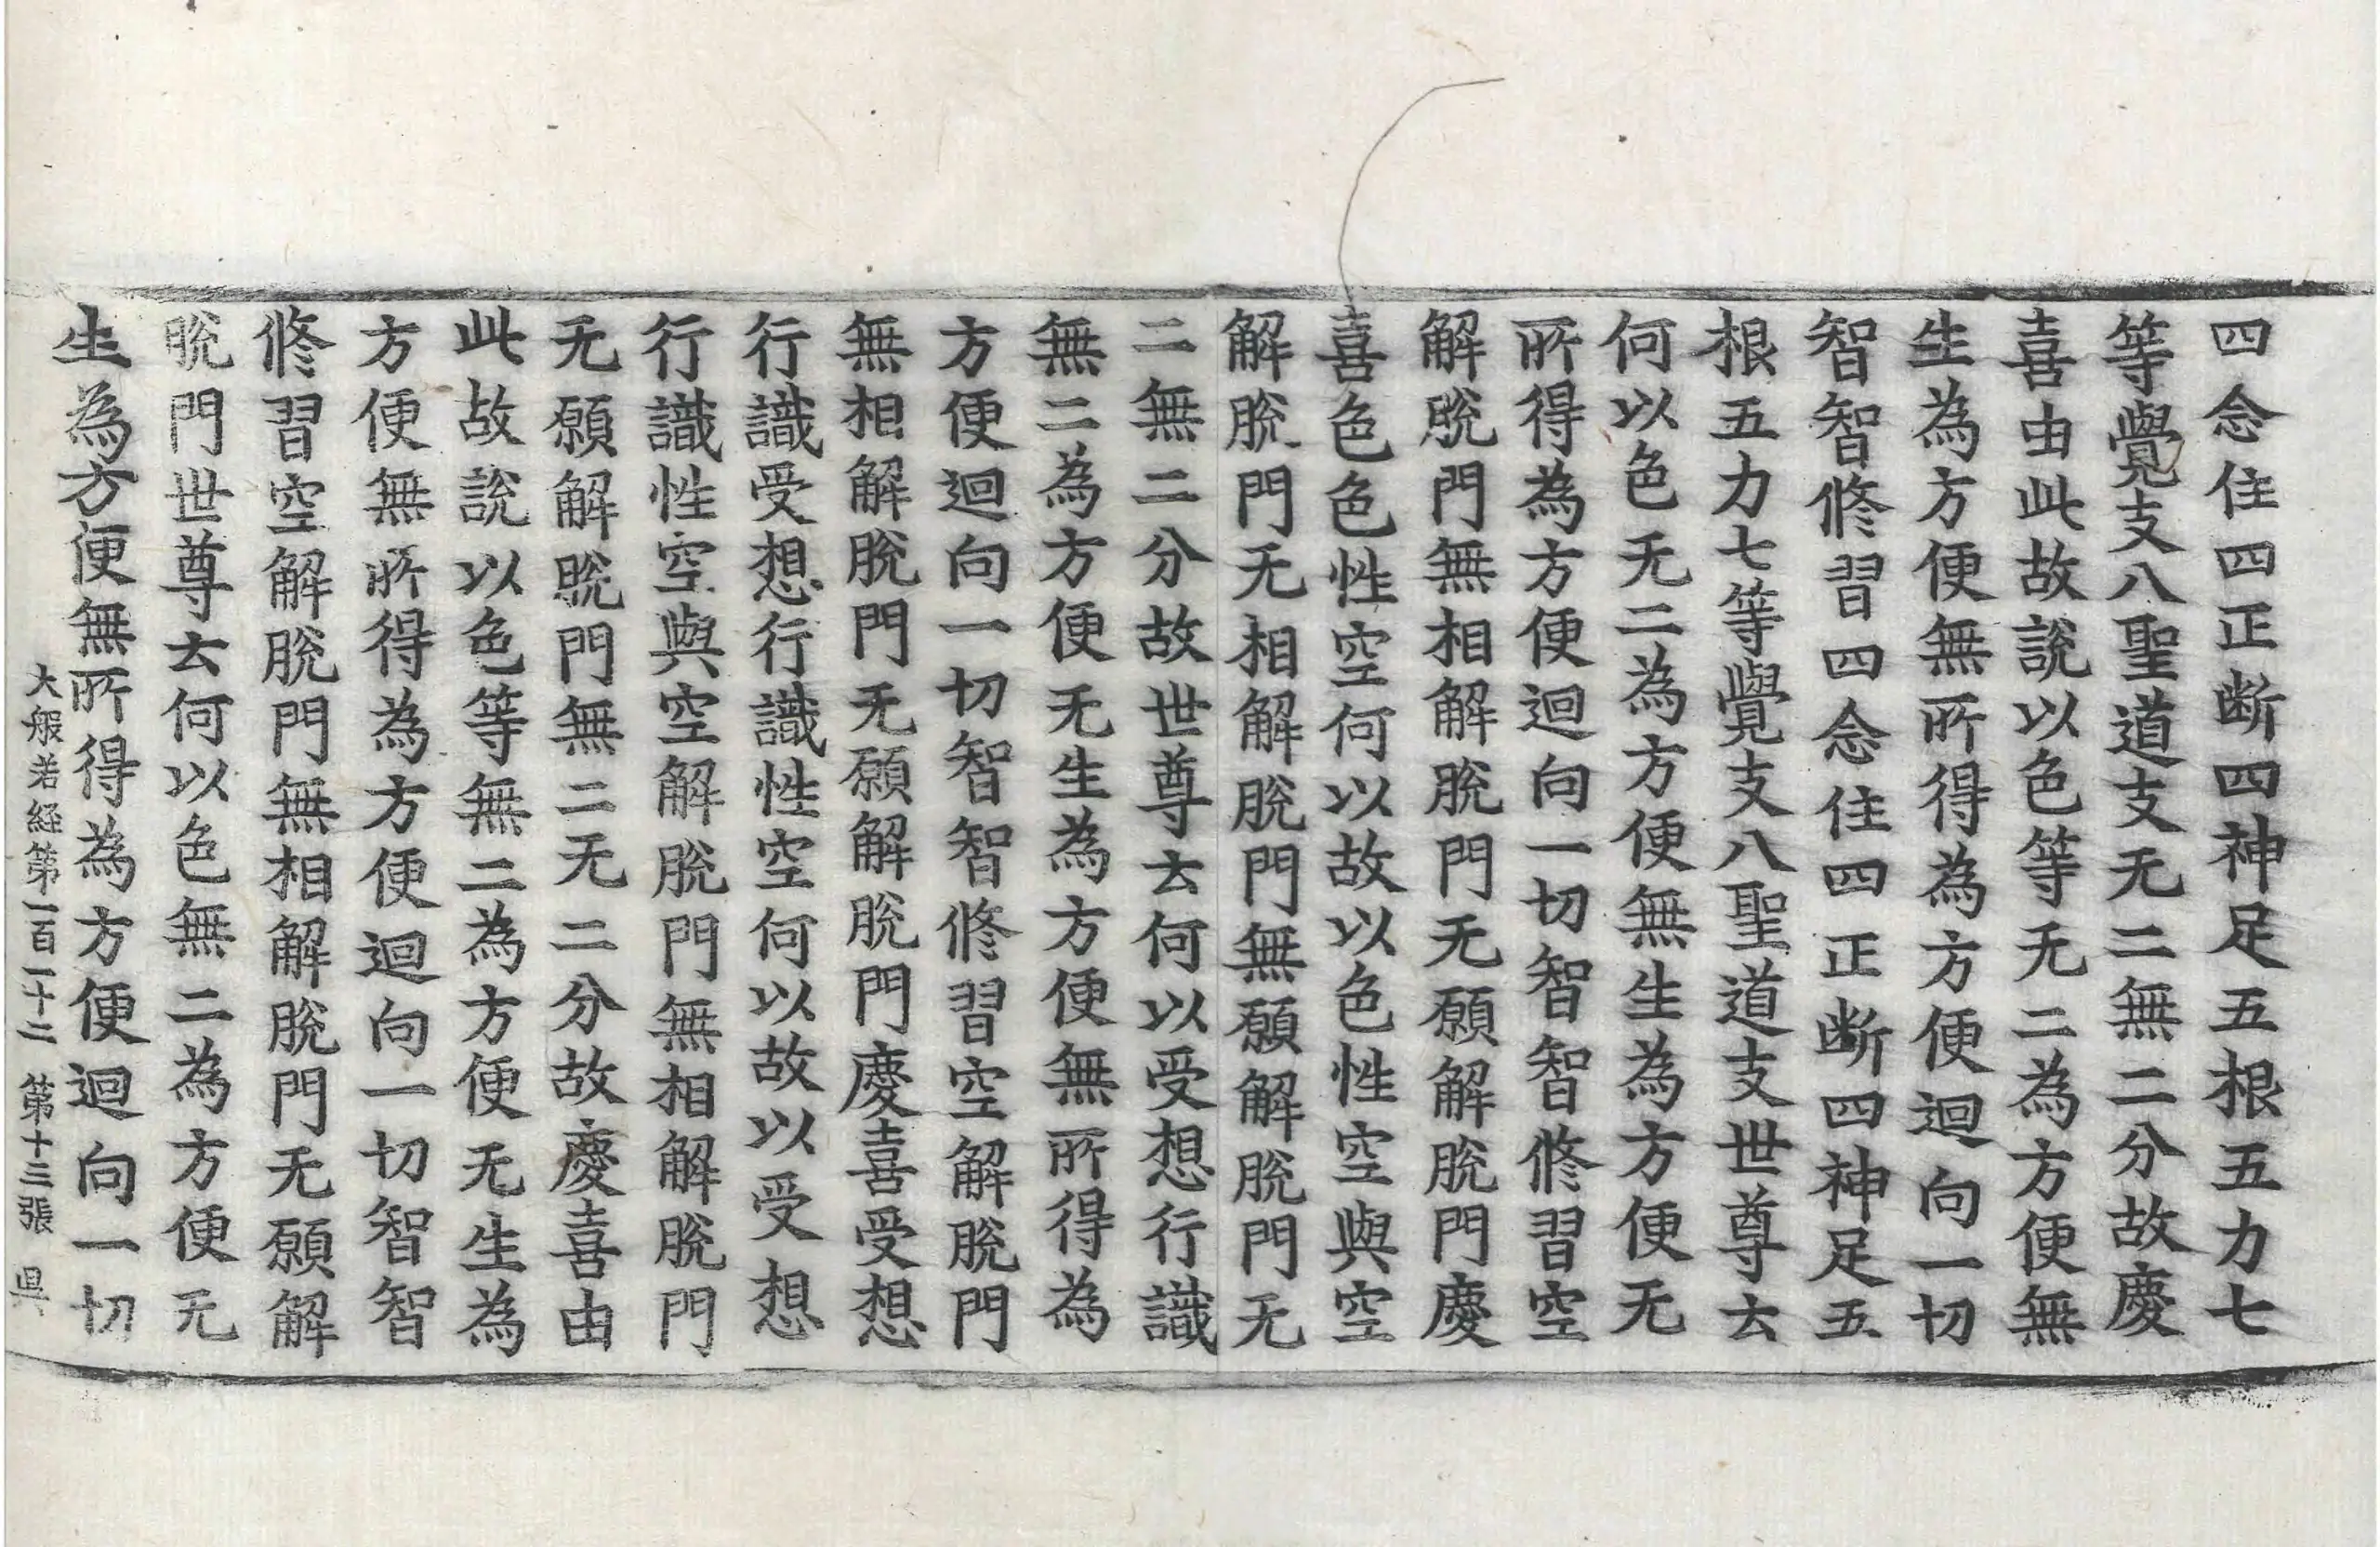 四念住四正断四神足五根五力七
等覺支八聖道支无二無二分故慶
喜由此故説以色等无二為方便無
生為方便無所得為方便迴向一切
智智修習四念住四正断四神足五
根五力七等覺支八聖道支世尊云
何以色无二為方便無生為方便无
所得為方便迴向一切智智修習空
解脫門無相解脫門无願解脫門慶
喜色色性空何以故以色性空與空
解脫門无相解脫門無願解脫門无
二無二分故世尊云何以受想行識
無二為方便无生為方便無所得為
方便迴向一切智智修習空解脫門
無相解脫門无願解脫門慶喜受想
行識受想行識性空何以故以受想
行識性空與空解脫門無相解脫門
无願解脫門無二无二分故慶喜由
此故説以色等無二為方便无生為
方便無所得為方便迴向一切智智
修習空解脫門無相解脫門无願解
脫門世尊云何以色無二為方便无
生為方便無所得為方便迴向一切
大般若経第一百一十二 第十三張 㫷